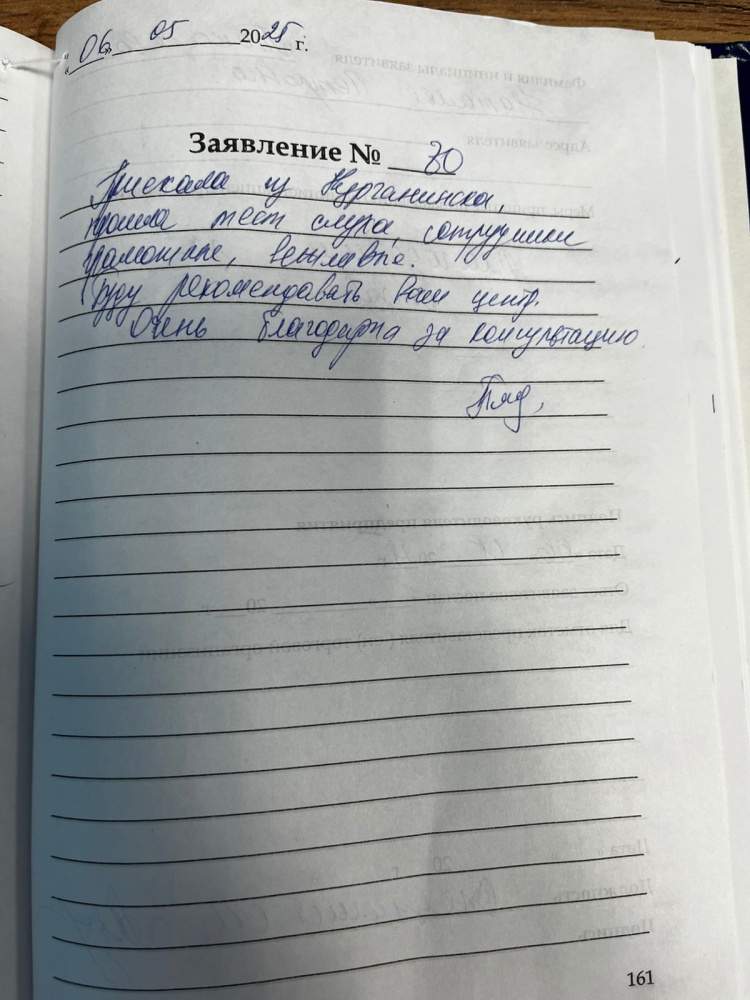 «06» 05 2025 г.
Заявление № 30
Приехала из Курганинска,
прошла тест слуха, сотрудники
грамотные, вежливые.
Буду рекомендовать Ваш центр.
Очень благодарна за консультацию.
161